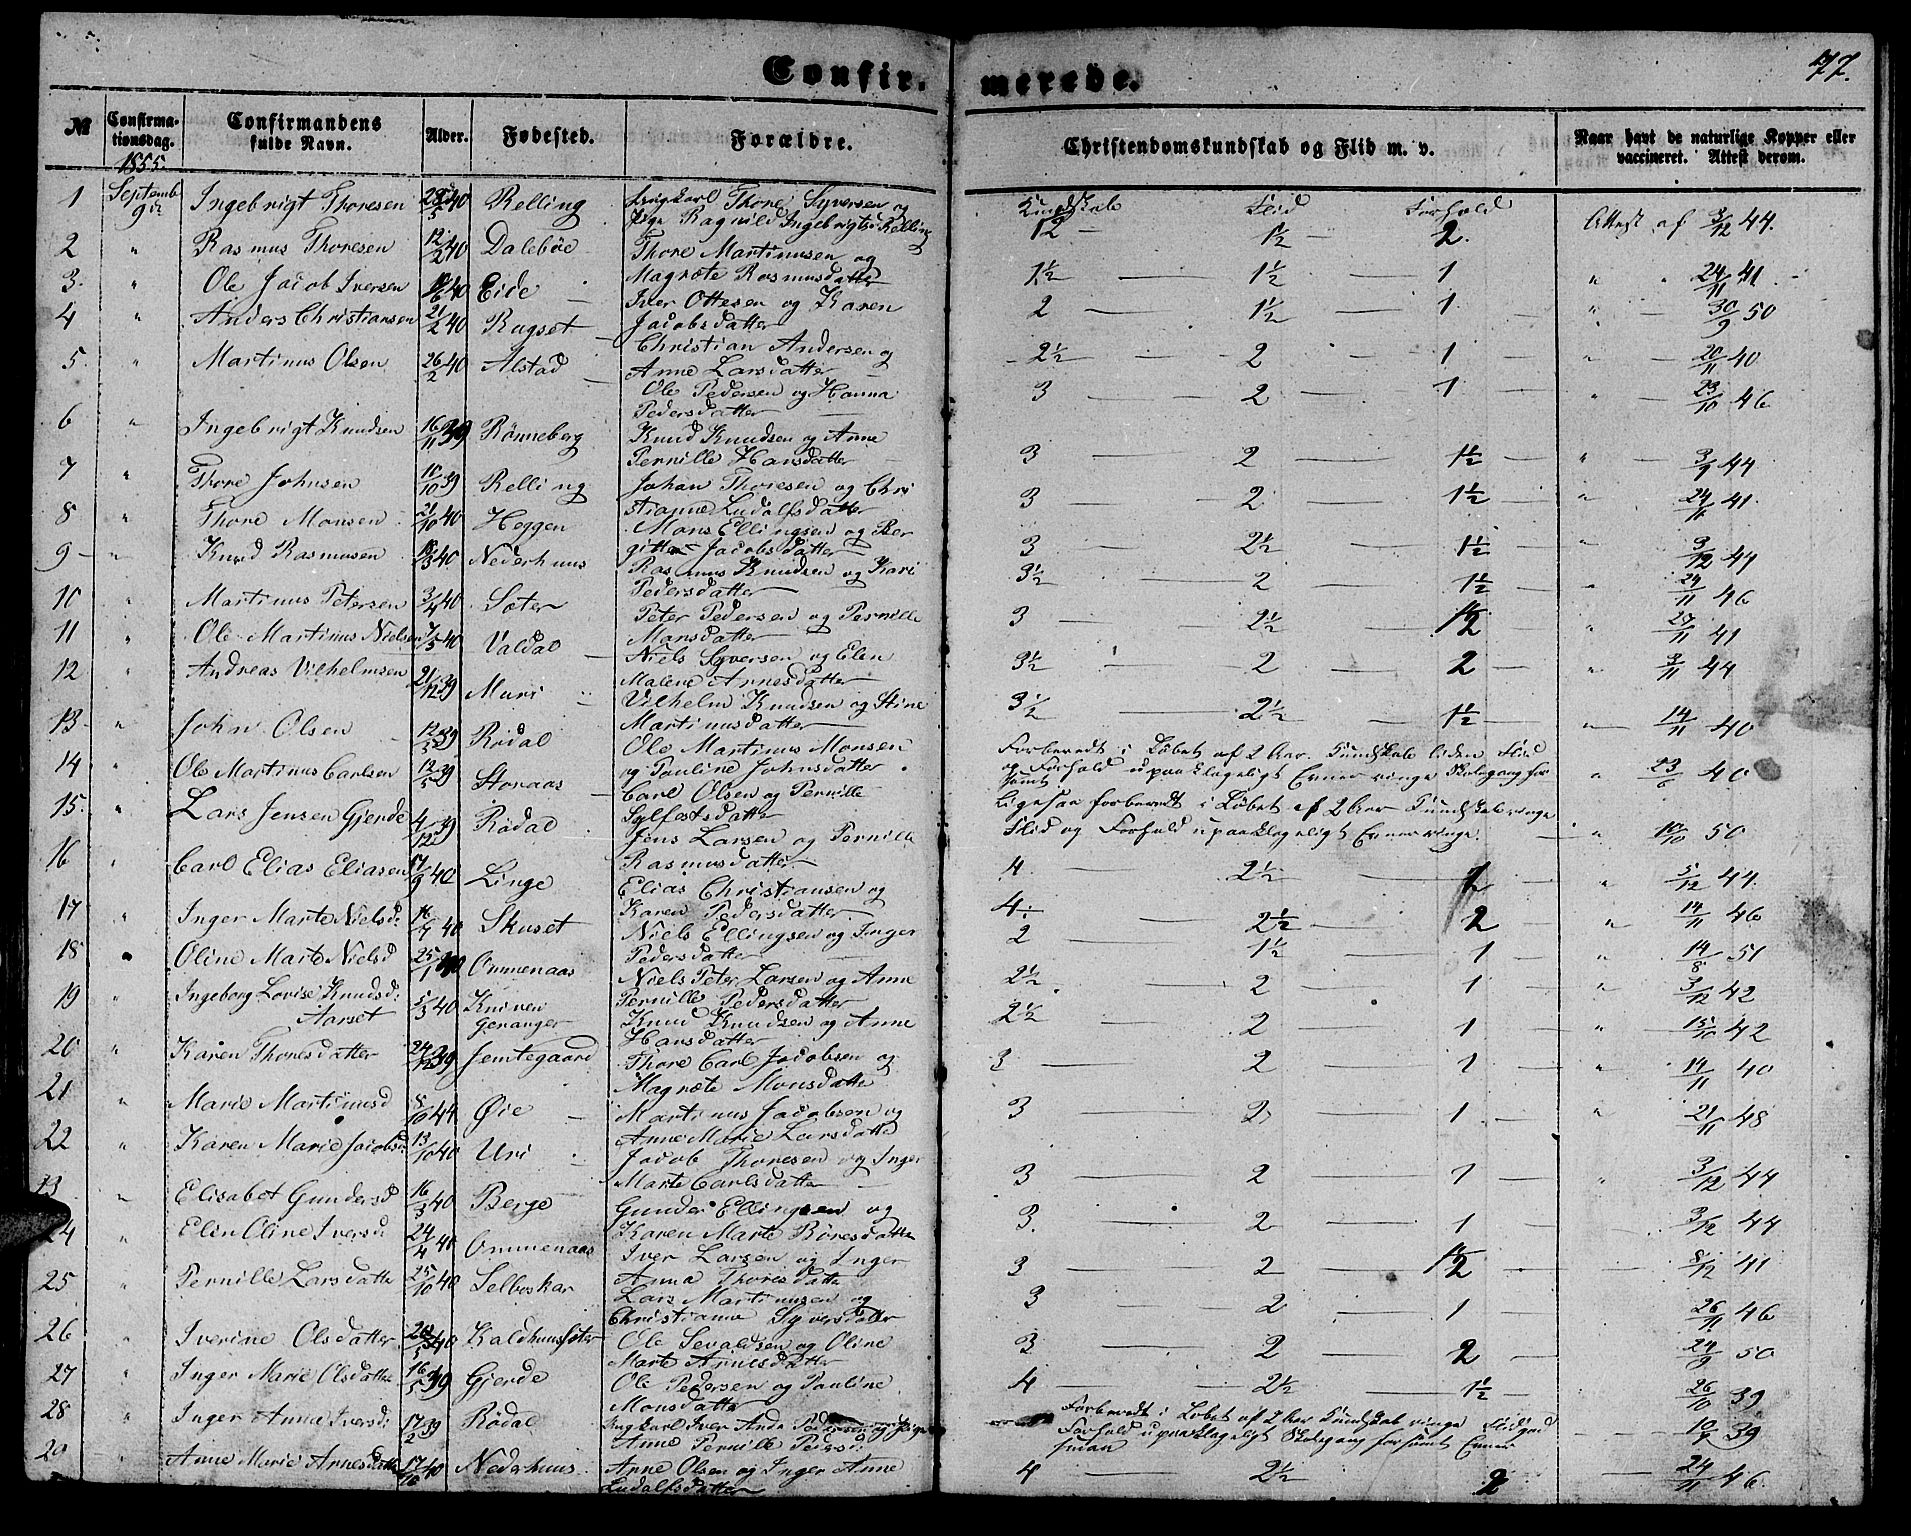 Confir. merede.
77.
№ Confirmationsdag. Confirmandens fulde Navn. Alder. Fødested. Forældre. Christendomskundskab og Flid m. v. Naar havt de naturlige Kopper eller vaccineret. Attest derom.
1855.
Kundskab Flid Forhold
1 Septemb 9de Ingebrigt Thoresen 40 Relling Ungkarl Thore Syversen og 12 — 1½ — 2. Attest af 3/12 44.
Pige Ragnild Ingebrigtsd Relling
2 " Rasmus Thoresen 12/2 40 Dalebøe Thore Martinusen og 1½ — 1½ — 1 " " 24/11 41
Magrete Rasmusdatter
3. " Ole Jacob Iversen 40 Eide Iver Ottesen og Karen 2 1½ — 1 " 30/9 50
Jacobsdatter
4 " Anders Christiansen 21/2 40 Rugset Christian Andersen og 2½ — 2 — 1 " 20/11 40
Anne Larsdatter
5. " Martinus Olsen 26/2 40 Alstad Ole Pedersen og Hanna 3 — 2 — 1 " 23/10 46
Pedersdatter
6 " Ingebrigt Knudsen 16/11 39 Rønneberg Knud Knudsen og Anne 3 — 2 — 1½ " 3/9 44
Pernille Hansdatter
7 " Thore Johnsen 11/10 39 Relling Johan Thoresen og Chri 3 — 2 — 1½ " 24/11 41.
stianne Ludalfsdatter
8 " Thore Monsen 21/10 40 Heggen Mons Ellingsen og Ber 3 — 2½ — 1½ " 3/12 44
gitte Jacobsdatter
9 " Knud Rasmusen 40 Nederhuus Rasmus Knudsen og Kari 3½ 2 — 1½ 24/11 46
Pedersdatter
10 " Martinus Petersen 3/4 40 Sæter Peter Pedersen og Pernille 3 — 2½ — " 24/11 41
Mansdatter
11 " Ole Martinus Nielsen 7/5 40 Valdal Niels Syversen og Elen 3½ 2 — 2 — " 3/11 44
Malene Arnesdatter
12 " Andreas Vilhelmsen 21/12 39 Muri Vilhelm Knudsen og Stine 3½ 2½ — 1½ — 14/11 40
Martinusdatter
13 " John Olsen 12/3 39 Rødal Ole Martinus Monsen Forberedt i Løbet af 2 Aar. Kundskab liden Flid
og Pauline Johnsdatter og Forhold upaaklageligt Evner ringe Skolegang for " 23/6 40
sømt
14 " Ole Martinus Carlsen 12/5 39 Stonaas Carl Olsen og Pernille Ligesaa forberedt i Løbet af 2 Aar Kundskab ringe
Sylfestsdatter Flid og Forhold upaaklageligt Evner ringe. " 50
15. " Lars Jensen Gjerde 4/12 39 Rødal Jens Larsen og Pernille 4 2½ — " 5/12 44.
Rasmusdatter
16 " Carl Elias Eliasen 17/9 40 Linge Elias Christiansen og 4 — 2½ — 2 " 14/11 46
Karen Pedersdatter
17 " Inger Marte Nielsd: 16/7 40 Skuset Niels Ellingsen og Inger 2 — 1½ — 1 " 14/8 51
Pedersdatter
18 " Oline Marte Nielsd 25/1 40 Ommenaas Niels Peter Larsen og Anne 2½ 2 — 1 " 3/12 42
Pernille Pedersdatter
19 " Ingeborg Lovise Knudsd: 1/3 40 Kniven Knud Knudsen og Anne 2½ 2 — 1 " 15/10 42
Aarset Geranger Hansdatter
20 " Karen Thoresdatter 24/12 39 Jemtegaard Thore Carl Jacobsen og 3 — 2 — 1 " 14/11 40
Magrete Monsdatte
21 " Marie Martinusd 8/10 44 Øie Martinus Jacobsen og 3 — 2 — 1 " 21/11 48
Anne Marie Larsdatte
22 " Karen Marie Jacobsd: 13/10 40 Uri Jacob Thoresen og Inger 3 — 2 — 1 3/12 44
Marte Carlsdatter
23 " Elisabet Gundersd 16/3 40 Berge Gunder Ellingsen og 3. — 2 — 1 3/12 44
Karen Marte Børesdatter
24 " Elen Oline Iversd: 24/4 40 Ommenaas Iver Larsen og Inger 3 — 2 — 8/12 41
Anna Thoresdatte
25 " Pernille Larsdatte 25/10 40 Selboskar Lars Martinusen og 3 — 2 — 1 26/11 46
Christianne Syversdatter
26 " Iverine Olsdatter 40 Kaldhuussæter Ole Sevaldsen og Oline 3 — 2 — 2 24/9 50
Marte Arnesdatter
27 " Inger Marie Olsdatte 16/5 39 Gjerde Ole Pedersen og Pauline 4 — 2½ — 1½ 26/10 39
Monsdatter
28 " Inger Anne Iversd: 17/2 39 Rødal Ungkarl Iver Pedersen og Pige Forberedt i Løbet af 2 Aar Kundskab ringe Flid god
Anne Pernille Pedersd: Forhold upaaklageligt Skolegang forsømt Evner — 39
29 " Anne Marie Arnesdatte 40 Nederhuus Arne Olsen og Inger Anne 4 — 2½ — 2 — 24/11 46.
Ludalfsdatter